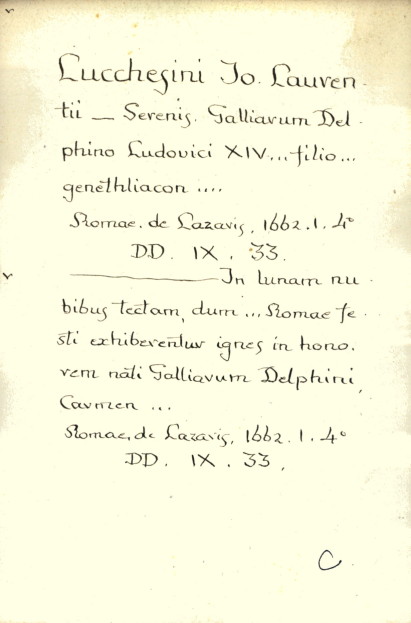 Lucchesini Jo. Lauren-
tii — Serenis. Galliarum Del-
phino Ludovici XIV... filio...
genethliacon ....
Romae, de Lazaris, 1662. 1. 4°
DD. IX. 33.
———— In lunam nu-
bibus tectam, dum ... Romae fe-
sti exhiberentur ignes in hono-
rem nati Galliarum Delphini,
Carmen ...
Romae, de Lazaris, 1662. 1. 4°
DD. IX. 33.
C